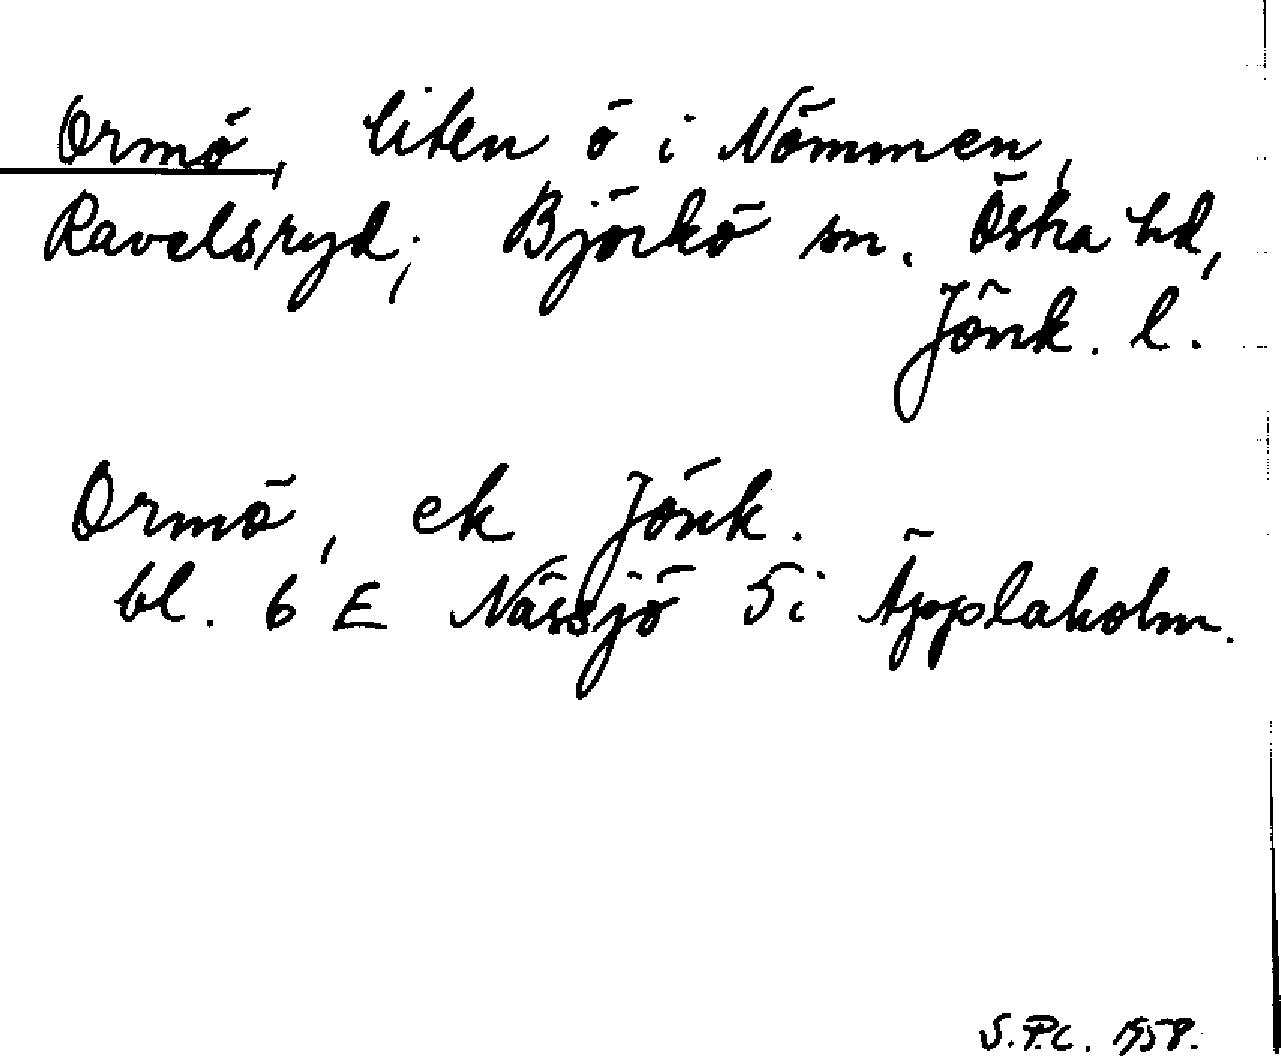 Ormö, liten ö i Nömmen,
Ravelsryd; Björkö sn. Östra hd,
Jönk. l.
Ormö, ek Jönk.
bl. 6 E Nässjö 5i Äpplaholm.
S.P.C. 1958.